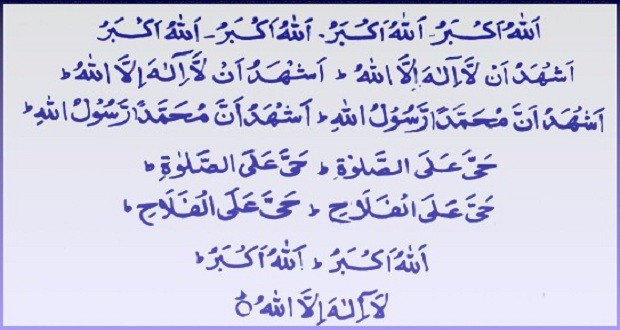 اَللهُ اَکْبَرُ۔ اَللهُ اَکْبَرُ۔ اَللهُ اَکْبَرُ۔ اَللهُ اَکْبَرُ
اَشْهَدُ اَنْ لَّآ اِلٰهَ اِلَّا اللهُ ط اَشْهَدُ اَنْ لَّآ اِلٰهَ اِلَّا اللهُ ط
اَشْهَدُ اَنَّ مُحَمَّدًا رَّسُوْلُ اللهِ ط اَشْهَدُ اَنَّ مُحَمَّدًا رَّسُوْلُ اللهِ ط
حَیَّ عَلَی الصَّلٰوةِ ط حَیَّ عَلَی الصَّلٰوةِ ط
حَیَّ عَلَی الْفَلَاحِ ط حَیَّ عَلَی الْفَلَاحِ ط
اَللهُ اَکْبَرُ ط اَللهُ اَکْبَرُ ط
لَآ اِلٰهَ اِلَّا اللهُ ط